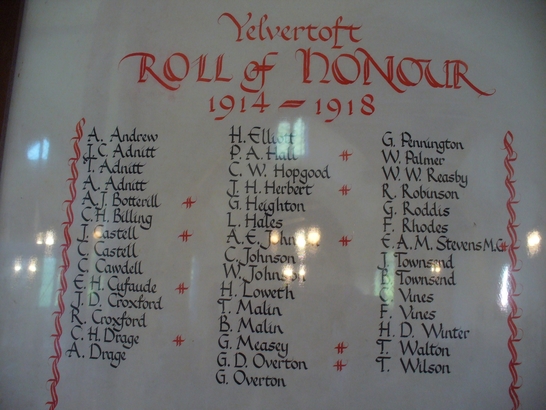 Yelvertoft
ROLL of HONOUR
1914 – 1918
A. Andrew
J. C. Adnitt
T. Adnitt
A. Adnitt
A. J. Botterill #
C. H. Billing
J. Castell #
C. Castell
C. Cawdell
E. H. Cufaude #
J. D. Croxford
R. Croxford
C. H. Drage #
A. Drage
H. Elliott
P. A. Hall #
C. W. Hopgood
J. H. Herbert #
G. Heighton
L. Hales
A. E. #
C. Johnson
W. Johnson
H. Loweth
T. Malin
B. Malin
G. Measey #
G. D. Overton #
G. Overton
G. Pennington
W. Palmer
W. W. Reasby
R. Robinson
G. Roddis
F. Rhodes
E. A. M. Stevens M.C.
J. Townsend
Townsend
C. Vines
F. Vines
H. D. Winter
T. Walton
T. Wilson